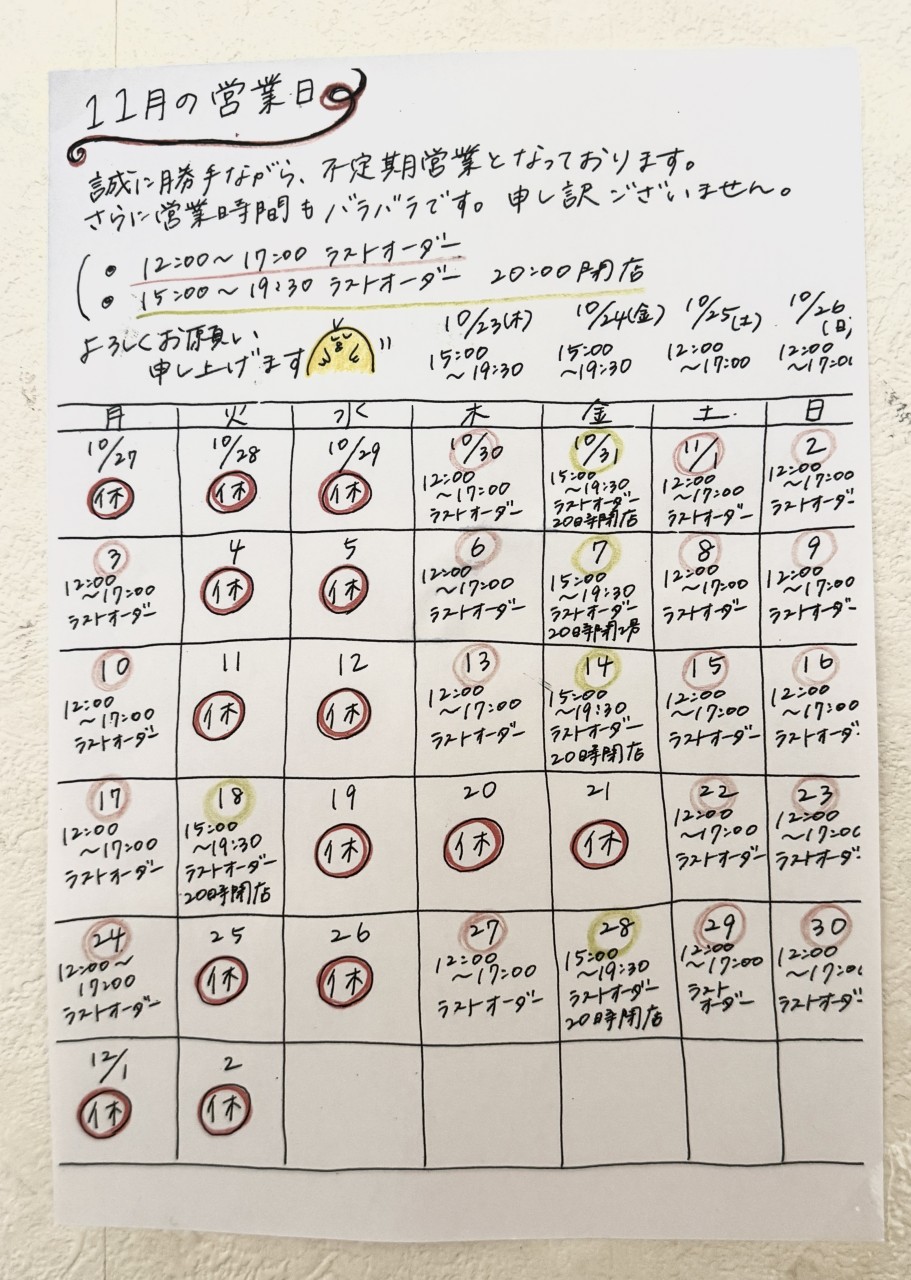 11月の営業日
誠に勝手ながら、不定期営業となっております。
さらに営業時間もバラバラです。申し訳ございません。
(• 12:00〜17:00 ラストオーダー
• 15:00〜19:30 ラストオーダー 20:00閉店
よろしくお願い
申し上げます
10/23(木) 15:00 〜19:30
10/24(金) 15:00 〜19:30
10/25(土) 12:00 〜17:00
10/26(日) 12:00 〜17:00
月 火 水 木 金 土 日
10/27 休
10/28 休
10/29 休
10/30 12:00 〜17:00 ラストオーダー
10/31 15:00 〜19:30 ラストオーダー 20時閉店
11/1 12:00 〜17:00 ラストオーダー
2 12:00 〜17:00 ラストオーダー
3 12:00 〜17:00 ラストオーダー
4 休
5 休
6 12:00 〜17:00 ラストオーダー
7 15:00 〜19:30 ラストオーダー 20時閉店
8 12:00 〜17:00 ラストオーダー
9 12:00 〜17:00 ラストオーダー
10 12:00 〜17:00 ラストオーダー
11 休
12 休
13 12:00 〜17:00 ラストオーダー
14 15:00 〜19:30 ラストオーダー 20時閉店
15 12:00 〜17:00 ラストオーダー
16 12:00 〜17:00 ラストオーダー
17 12:00 〜17:00 ラストオーダー
18 15:00 〜19:30 ラストオーダー 20時閉店
19 休
20 休
21 休
22 12:00 〜17:00 ラストオーダー
23 12:00 〜17:00 ラストオーダー
24 12:00〜 17:00 ラストオーダー
25 休
26 休
27 12:00 〜17:00 ラストオーダー
28 15:00 〜19:30 ラストオーダー 20時閉店
29 12:00 〜17:00 ラストオーダー
30 12:00 〜17:00 ラストオーダー
12/1 休
2 休